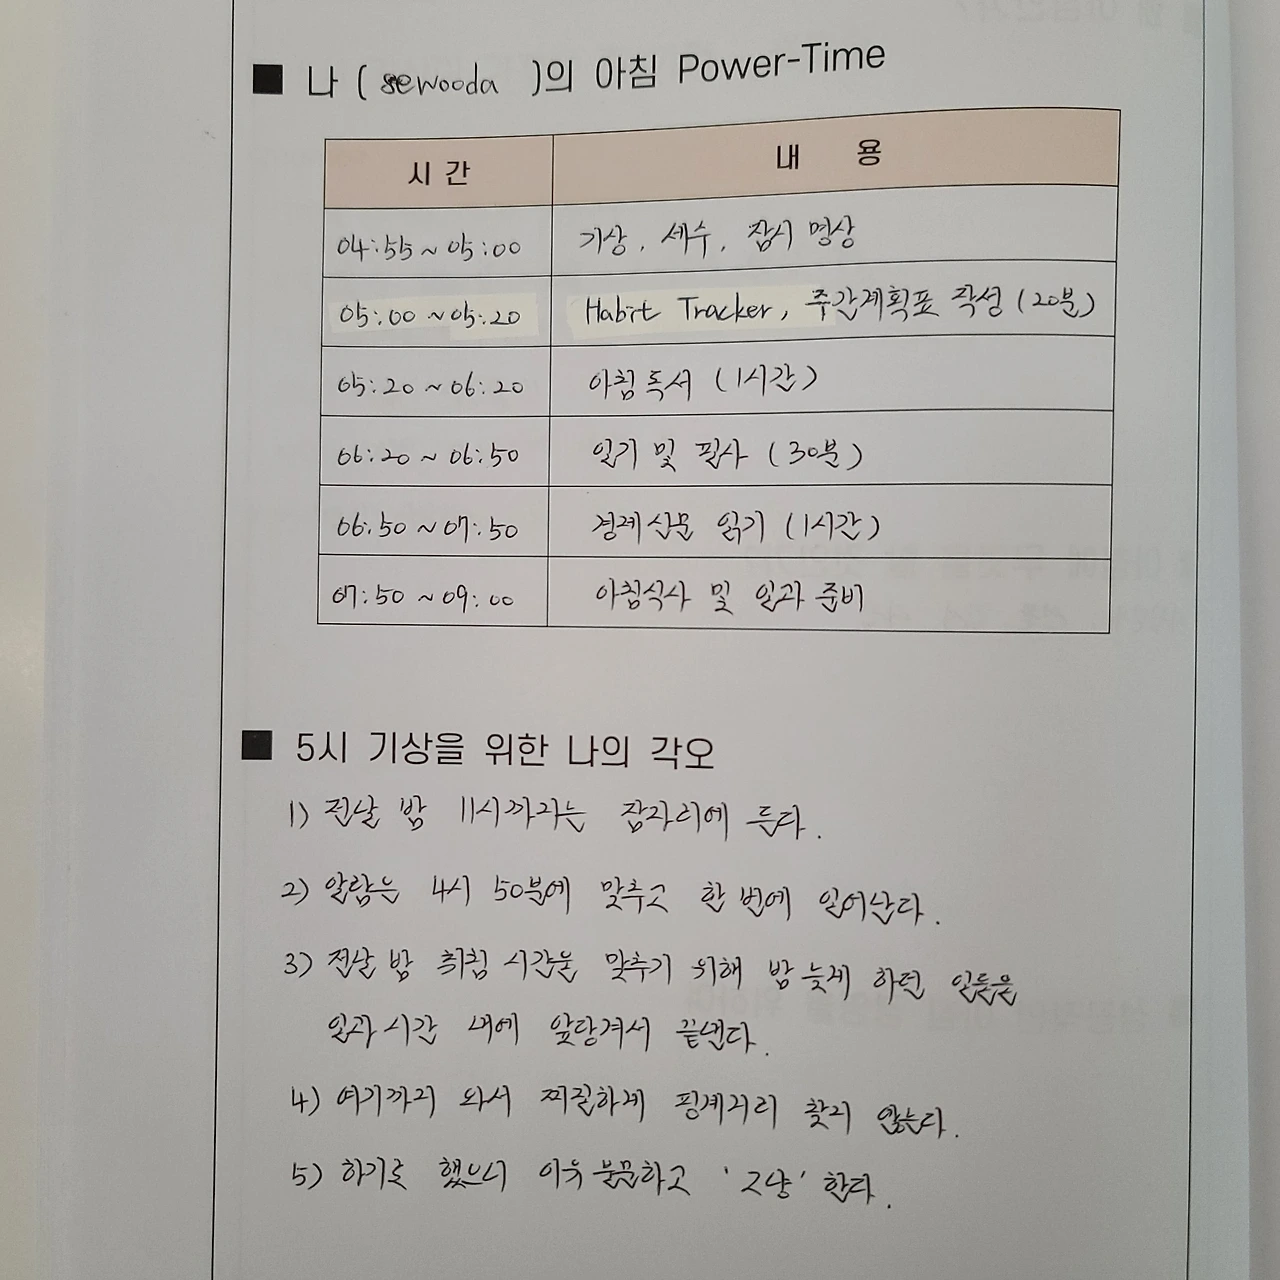 ■ 나 ( sewooda )의 아침 Power-Time
시 간 내 용
04:55 ~ 05:00 기상, 세수, 잠시 명상
05:00 ~ 05:20 Habit Tracker, 주간계획표 작성 (20분)
05:20 ~ 06:20 아침 독서 (1시간)
06:20 ~ 06:50 일기 및 필사 (30분)
06:50 ~ 07:50 경제신문 읽기 (1시간)
07:50 ~ 09:00 아침식사 및 일과 준비
■ 5시 기상을 위한 나의 각오
1) 전날 밤 11시까지는 잠자리에 든다.
2) 알람은 4시 50분에 맞추고 한 번에 일어난다.
3) 전날 밤 취침 시간을 맞추기 위해 밤 늦게 하던 일들은
일과 시간 내에 앞당겨서 끝낸다.
4) 여기까지 와서 찌질하게 핑계거리 찾지 않는다.
5) 하기로 했으니 이유 불문하고 '그냥' 한다.